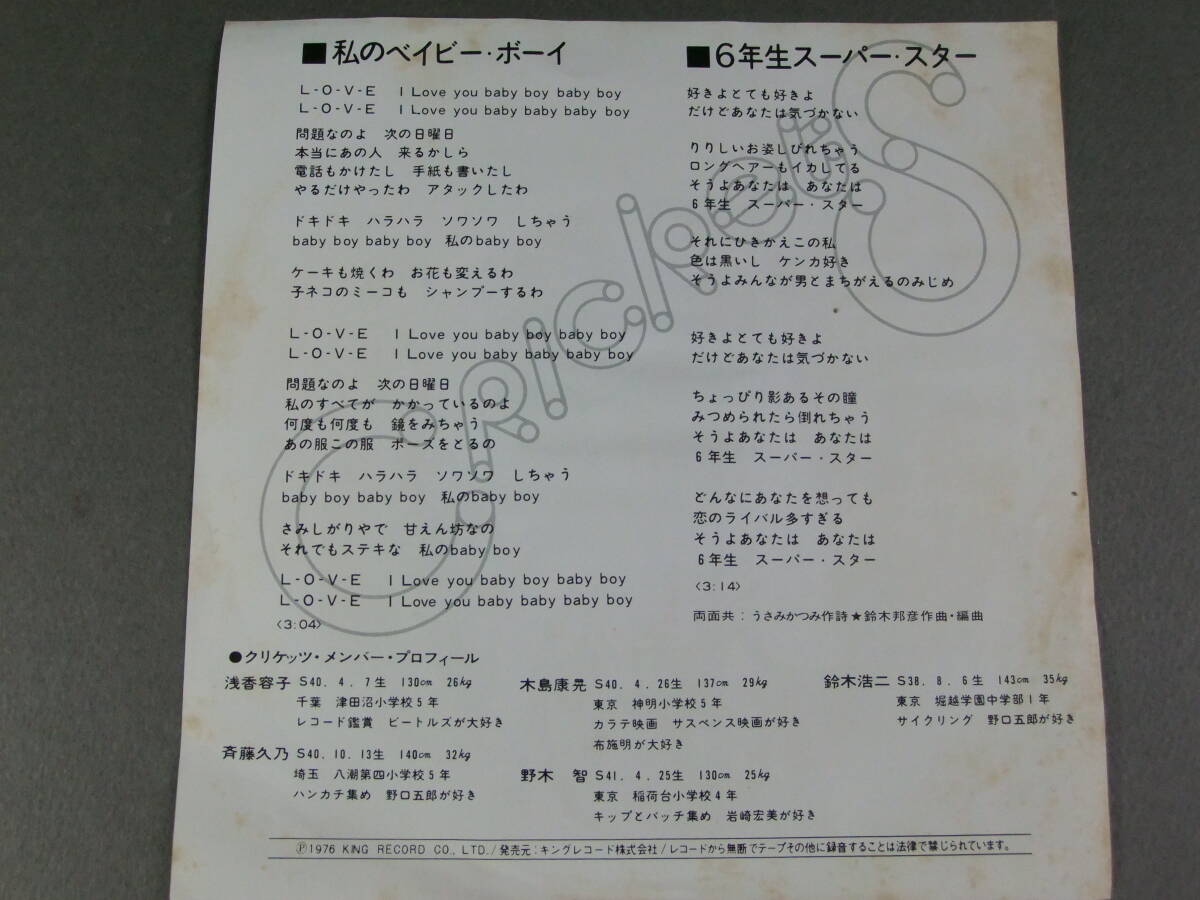 ■私のベイビー・ボーイ
L-O-V-E I Love you baby boy baby boy
L-O-V-E I Love you baby baby baby boy
問題なのよ 次の日曜日
本当にあの人 来るかしら
電話もかけたし 手紙も書いたし
やるだけやったわ アタックしたわ
ドキドキ ハラハラ ソワソワ しちゃう
baby boy baby boy 私のbaby boy
ケーキも焼くわ お花も変えるわ
子ネコのミーコも シャンプーするわ
L-O-V-E I Love you baby boy baby boy
L-O-V-E I Love you baby baby baby boy
問題なのよ 次の日曜日
私のすべてが かかっているのよ
何度も何度も 鏡をみちゃう
あの服この服 ポーズをとるの
ドキドキ ハラハラ ソワソワ しちゃう
baby boy baby boy 私のbaby boy
さみしがりやで 甘えん坊なの
それでもステキな 私のbaby boy
L-O-V-E I Love you baby boy baby boy
L-O-V-E I Love you baby baby baby boy
〈3:04〉
■6年生スーパー・スター
好きよとても好きよ
だけどあなたは気づかない
りりしいお姿しびれちゃう
ロングヘアーもイカしてる
そうよあなたは あなたは
6年生 スーパー・スター
それにひきかえこの私
色は黒いし ケンカ好き
そうよみんなが男とまちがえるのみじめ
好きよとても好きよ
だけどあなたは気づかない
ちょっぴり影あるその瞳
みつめられたら倒れちゃう
そうよあなたは あなたは
6年生 スーパー・スター
どんなにあなたを想っても
恋のライバル多すぎる
そうよあなたは あなたは
6年生 スーパー・スター
〈3:14〉
両面共：うさみかつみ作詩★鈴木邦彦作曲・編曲
CRICKETS
●クリケッツ・メンバー・プロフィール
浅香容子 S40．4．7生 130cm 26kg
千葉 津田沼小学校5年
レコード鑑賞 ビートルズが大好き
斉藤久乃 S40．10．13生 140cm 32kg
埼玉 八潮第四小学校5年
ハンカチ集め 野口五郎が好き
木島康晃 S40．4．26生 137cm 29kg
東京 神明小学校5年
カラテ映画 サスペンス映画が好き
布施明が大好き
野木 智 S41．4．25生 130cm 25kg
東京 稲荷台小学校4年
キップとバッチ集め 岩崎宏美が好き
鈴木浩二 S38．8．6生 143cm 35kg
東京 堀越学園中学部1年
サイクリング 野口五郎が好き
Ⓟ1976 KING RECORD CO., LTD./発売元：キングレコード株式会社/レコードから無断でテープその他に録音することは法律で禁じられています。